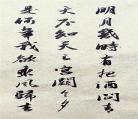 明月幾時有把酒問青
天不知天上宮闕今夕
是何年我欲乘風歸去